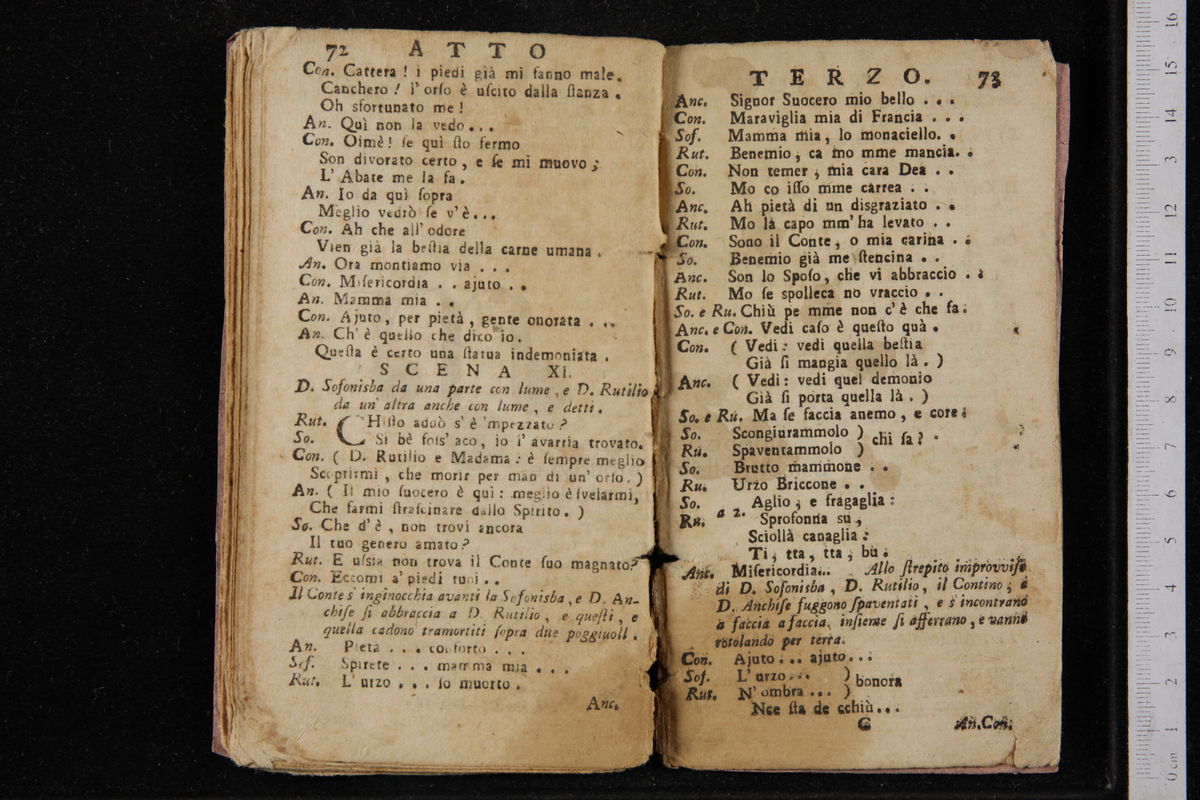 72 ATTO
Con. Cattera ! i piedi già mi fanno male.
Canchero ! l' orſo è uſcito dalla ſtanza .
Oh sfortunato me !
An. Quì non la vedo...
Con. Oimè! ſe quì ſto fermo
Son divorato certo , e ſe mi muovo ;
L' Abate me la fa .
An. Io da quì ſopra
Meglio vedrò ſe v' è...
Con. Ah che all' odore
Vien già la beſtia della carne umana .
An. Ora montiamo via . . .
Con. Miſericordia . . ajuto . .
An. Mamma mia . .
Con. Ajuto, per pietà , gente onorata . ..
An. Ch' è quello che dico io.
Queſta è certo una ſtatua indemoniata .
SCENA XI.
D. Sofonisba da una parte con lume , e D. Rutilio
da un' altra anche con lume , e detti .
Rut. CHiſto addò s' è 'mpezzato ?
So. Si bè foſs' aco, io l' avarria trovato.
Con. ( D. Rutilio e Madama : è ſempre meglio
Scoprirmi , che morir per man di un' orſo. )
An. ( Il mio ſuocero è quì : meglio è ſvelarmi,
Che farmi ſtraſcinare dallo Spirito. )
So. Che d' è , non trovi ancora
Il tuo genero amato ?
Rut. E uſsìa non trova il Conte ſuo magnato?
Con. Eccomi a' piedi tuoi . .
Il Conte s' inginocchia avanti la Sofonisba , e D. An-
chiſe ſi abbraccia a D. Rutilio, e queſti , e
quella cadono tramortiti ſopra due poggiuoli .
An. Pietà . . . conforto . . .
Sof. Spirete . . . mamma mia . . .
Rut. L' urzo . . . ſo muorto .
Anc.
TERZO. 73
Anc. Signor Suocero mio bello . . .
Con. Maraviglia mia di Francia . . .
Sof. Mamma mia, lo monaciello. .
Rut. Benemio , ca mo mme mancia. .
Con. Non temer , mia cara Dea . .
So. Mo co iſſo mme carrea . .
Anc. Ah pietà di un disgraziato . .
Rut. Mo la capo mm' ha levato . .
Con. Sono il Conte, o mia carina . .
So. Benemio già me ſtencina . .
Anc. Son lo Spoſo, che vi abbraccio . .
Rut. Mo ſe spolleca no vraccio . .
So. e Ru. Chiù pe mme non c' è che fa.
Anc. e Con. Vedi caſo è queſto quà .
Con. ( Vedi : vedi quella beſtia
Già ſi mangia quello là . )
Anc. ( Vedi : vedi quel demonio
Già ſi porta quella là . )
So. e Ru. Ma ſe faccia anemo , e core :
So. Scongiurammolo ) chi ſa ?
Ru. Spaventammolo )
So. Brutto mammone . .
Ru. Urzo Briccone . .
So. Aglio , e fragaglia :
Ru. a 2. Sprofonna su ,
Sciollà canaglia :
Ti , tta , tta , bù .
Anc. Miſericordia... Allo ſtrepito improvviſo
di D. Sofonisba , D. Rutilio, il Contino, e
D. Anchiſe fuggono ſpaventati , e s' incontrano
a faccia a faccia, inſieme ſi afferrano, e vanno
rotolando per terra.
Con. Ajuto ... ajuto...
Sof. L' urzo ... ) bonora
Rut. N' ombra ... )
Nce ſta de cchiù...
G An. Con.